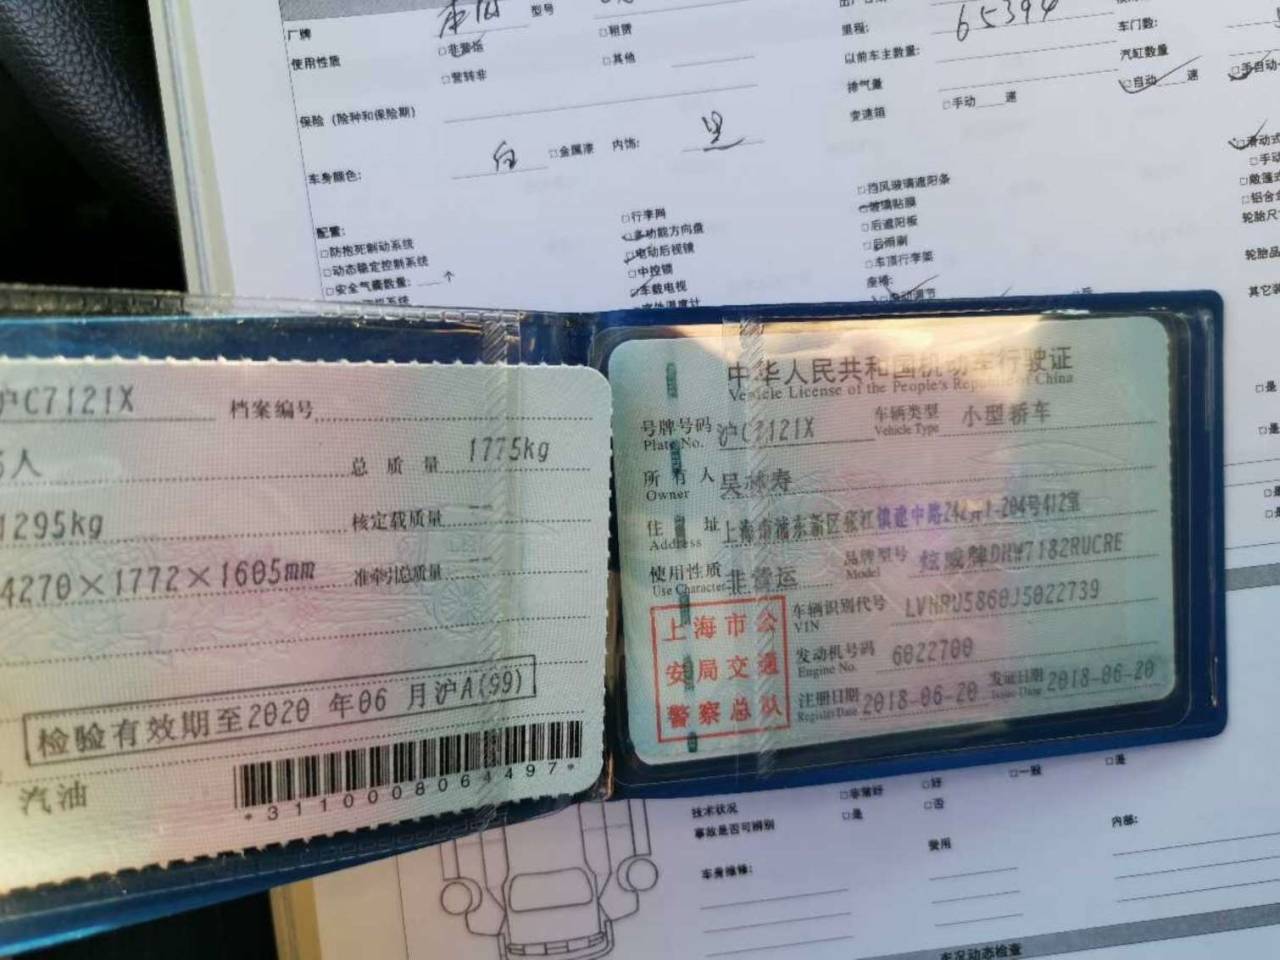 厂牌
型号
里程: 65394
车门数:
使用性质
□非营运
□租赁
以前车主数量:
汽缸数量
□营转非
□其他
排气量
□自动 速
保险（险种和保险期）
变速箱
□手动 速
车身颜色: 白 □金属漆 内饰: 黑
配置:
□行李网
□挡风玻璃遮阳条
□防抱死制动系统
□多功能方向盘
□玻璃贴膜
□动态稳定控制系统
□电动后视镜
□后遮阳板
□安全气囊数量: 个
□中控锁
□后雨刷
□车载电视
□车顶行李架
座椅:
沪C7121X
档案编号
5人
总质量 1775kg
1295kg
核定载质量 --
4270×1772×1605mm
准牵引总质量 --
检验有效期至2020 年06 月沪A(99)
汽油
*3110008064497*
中华人民共和国机动车行驶证
Vehicle License of the People's Republic of China
号牌号码 沪C7121X 车辆类型 小型轿车
Plate No. Vehicle Type
所有人
Owner
住址 上海市浦东新区张江镇建中路
Address
使用性质 非营运 品牌型号
Use Character Model
上海市公
安局交通
警察总队
车辆识别代号
VIN
发动机号码 6022700
Engine No.
注册日期 2018-06-20 发证日期 2018-06-20
Register Date Issue Date
技术状况
□非常好
□好
□一般
□差
事故是否可辨别
□是
□否
车身维修:
费用
内部:
车况动态检查